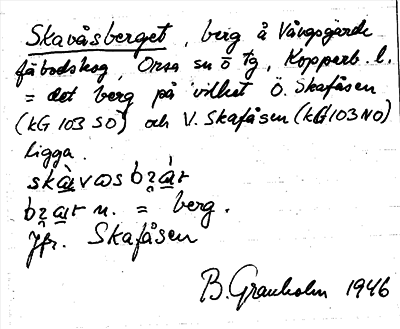 Skavåsberget, berg å Vångsgärde
fäbodskog, Orsa sn o tg, Kopparb. l.
= det berg på vilket Ö. Skafåsen
(kG 103 SO) och V. Skafåsen (kG 103 NO)
ligga.
= berg.
Jfr. Skafåsen
B. Granholm 1946